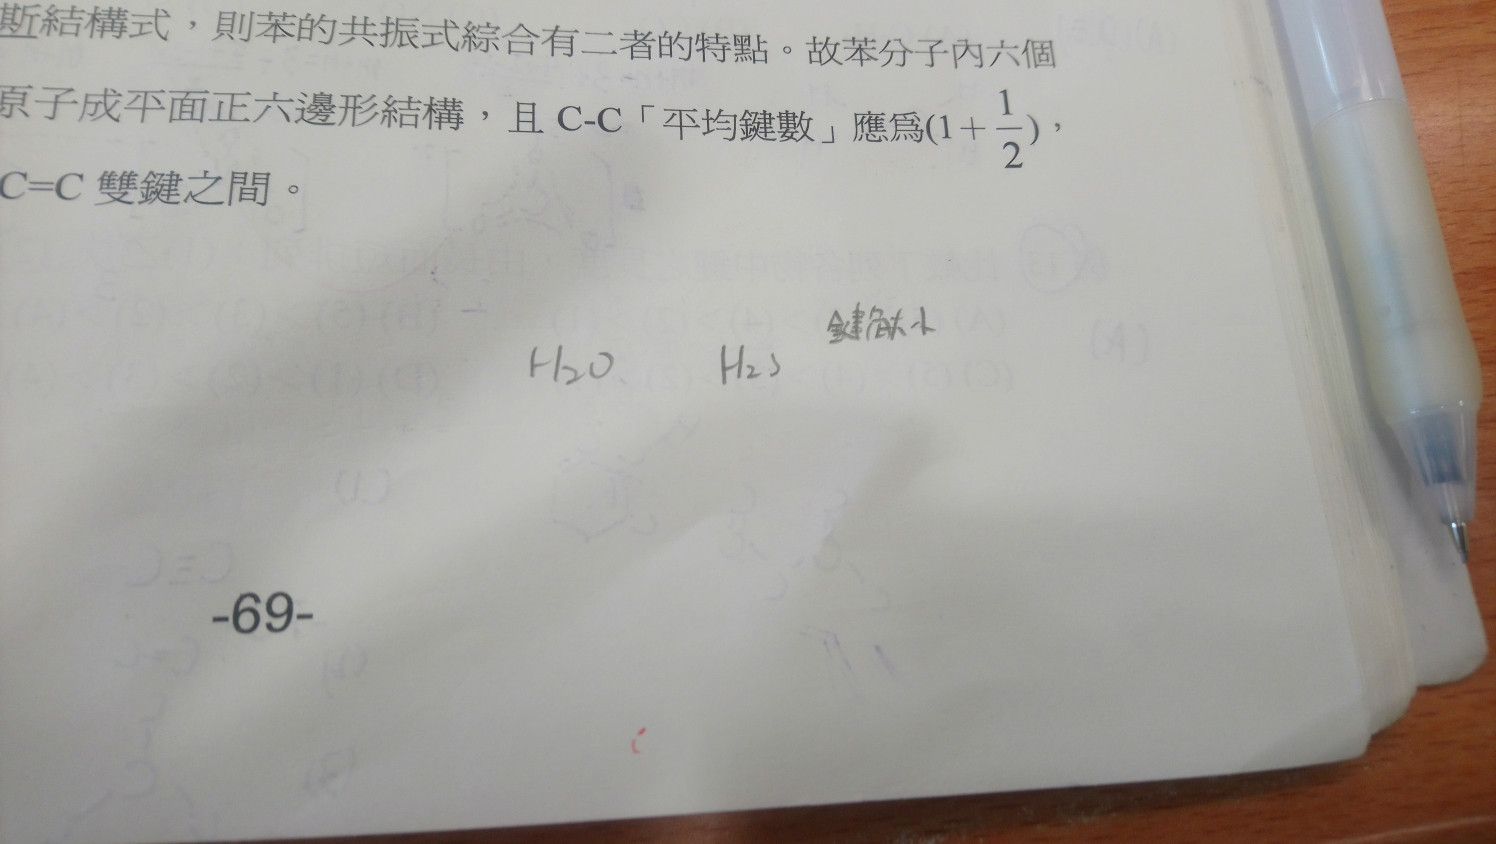 斯結構式，則苯的共振式綜合有二者的特點。故苯分子內六個
原子成平面正六邊形結構，且 C-C「平均鍵數」應爲(1+1/2)，
C=C 雙鍵之間。
鍵角大小
H₂O H₂S
-69-